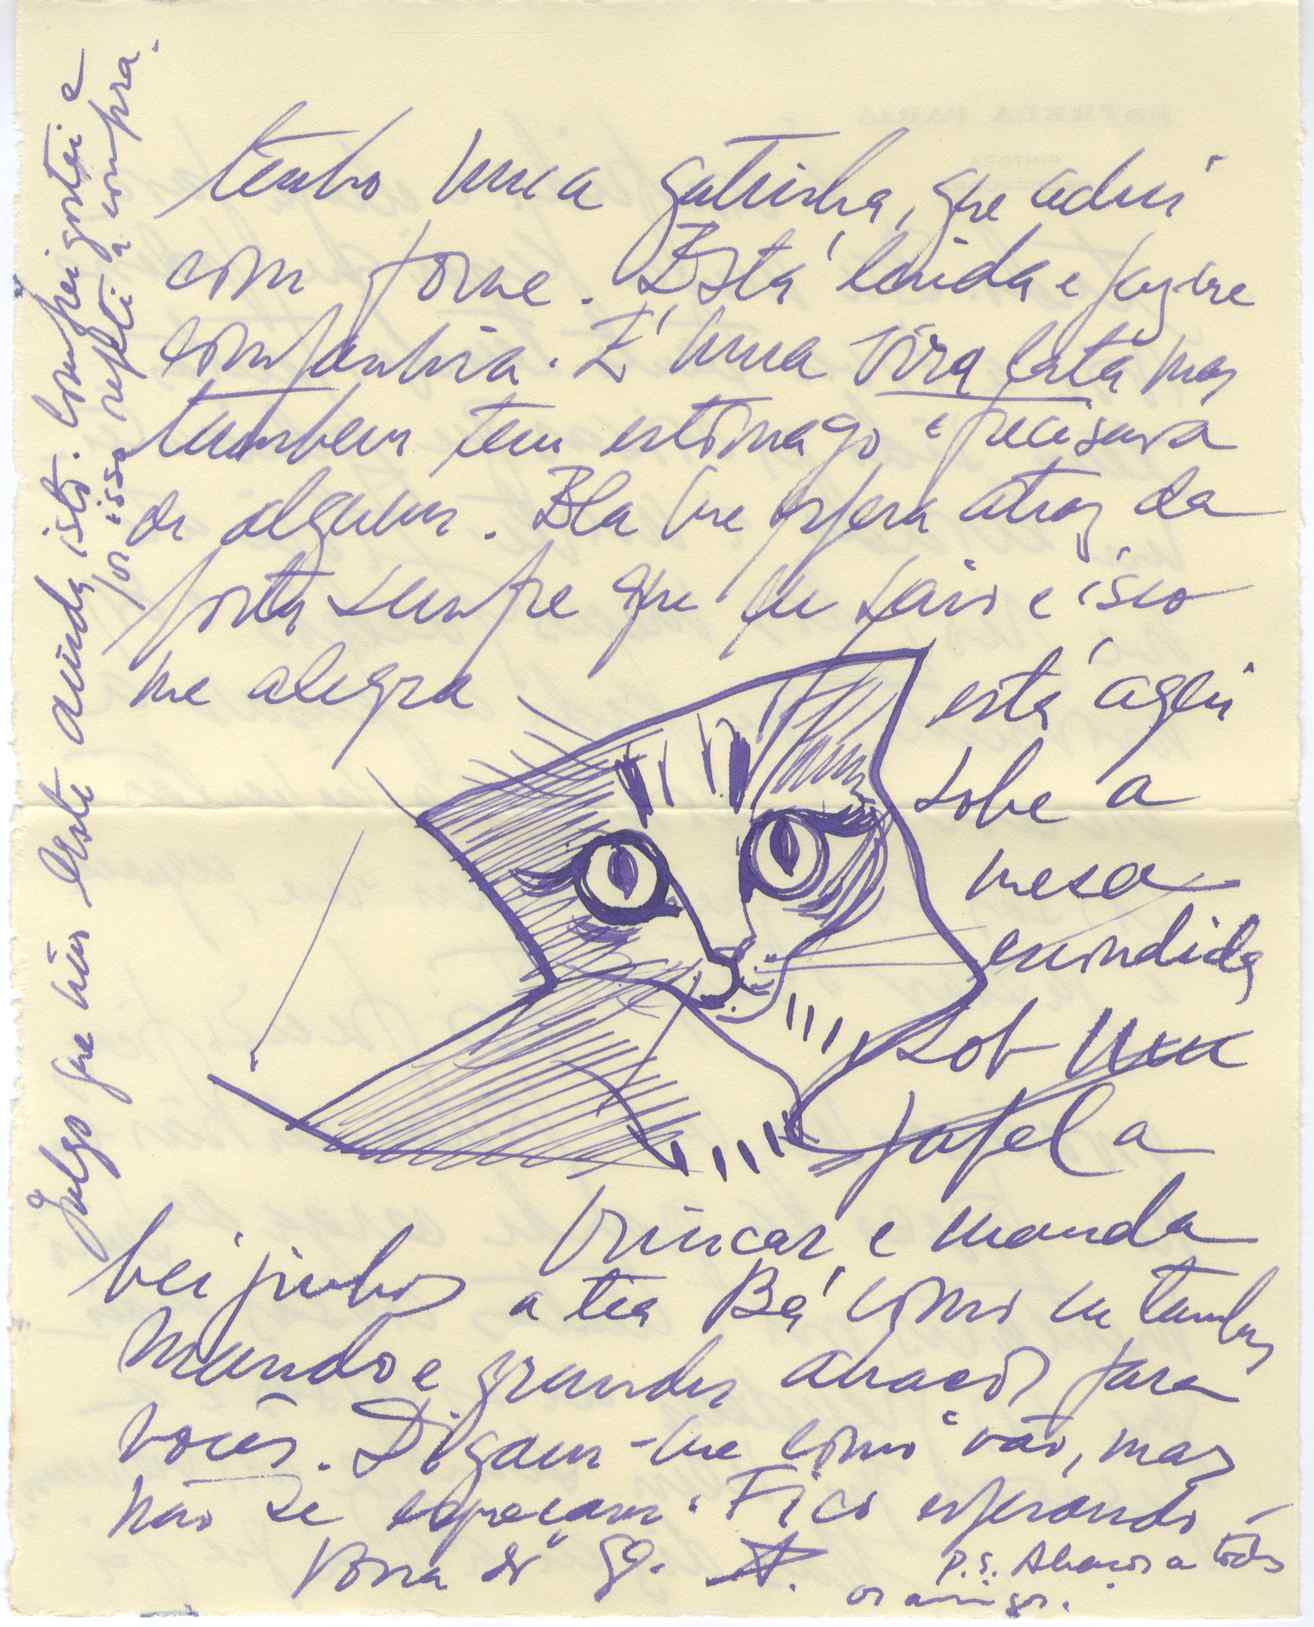 tenho uma gatinha, que achei
com fome. Está linda e faz-me
companhia. É uma vira lata mas
tambem tem estômago e precisava
de alguem. Ela me espera atraz da
porta sempre que eu saio e isso
me alegra está aqui
sobre a
mesa
escondida
sob um
papel a
brincar e manda
beijinhos a tia Bá como eu tambem
mando e grandes abraços para
vocês. Digam-me como vão, mas
não se esqueçam. Fico esperando
Vossa
P.S. Abraços a todos
os amigos.
Julgo que não leste ainda isto. Comprei gostei e
por isso repeti a compra.